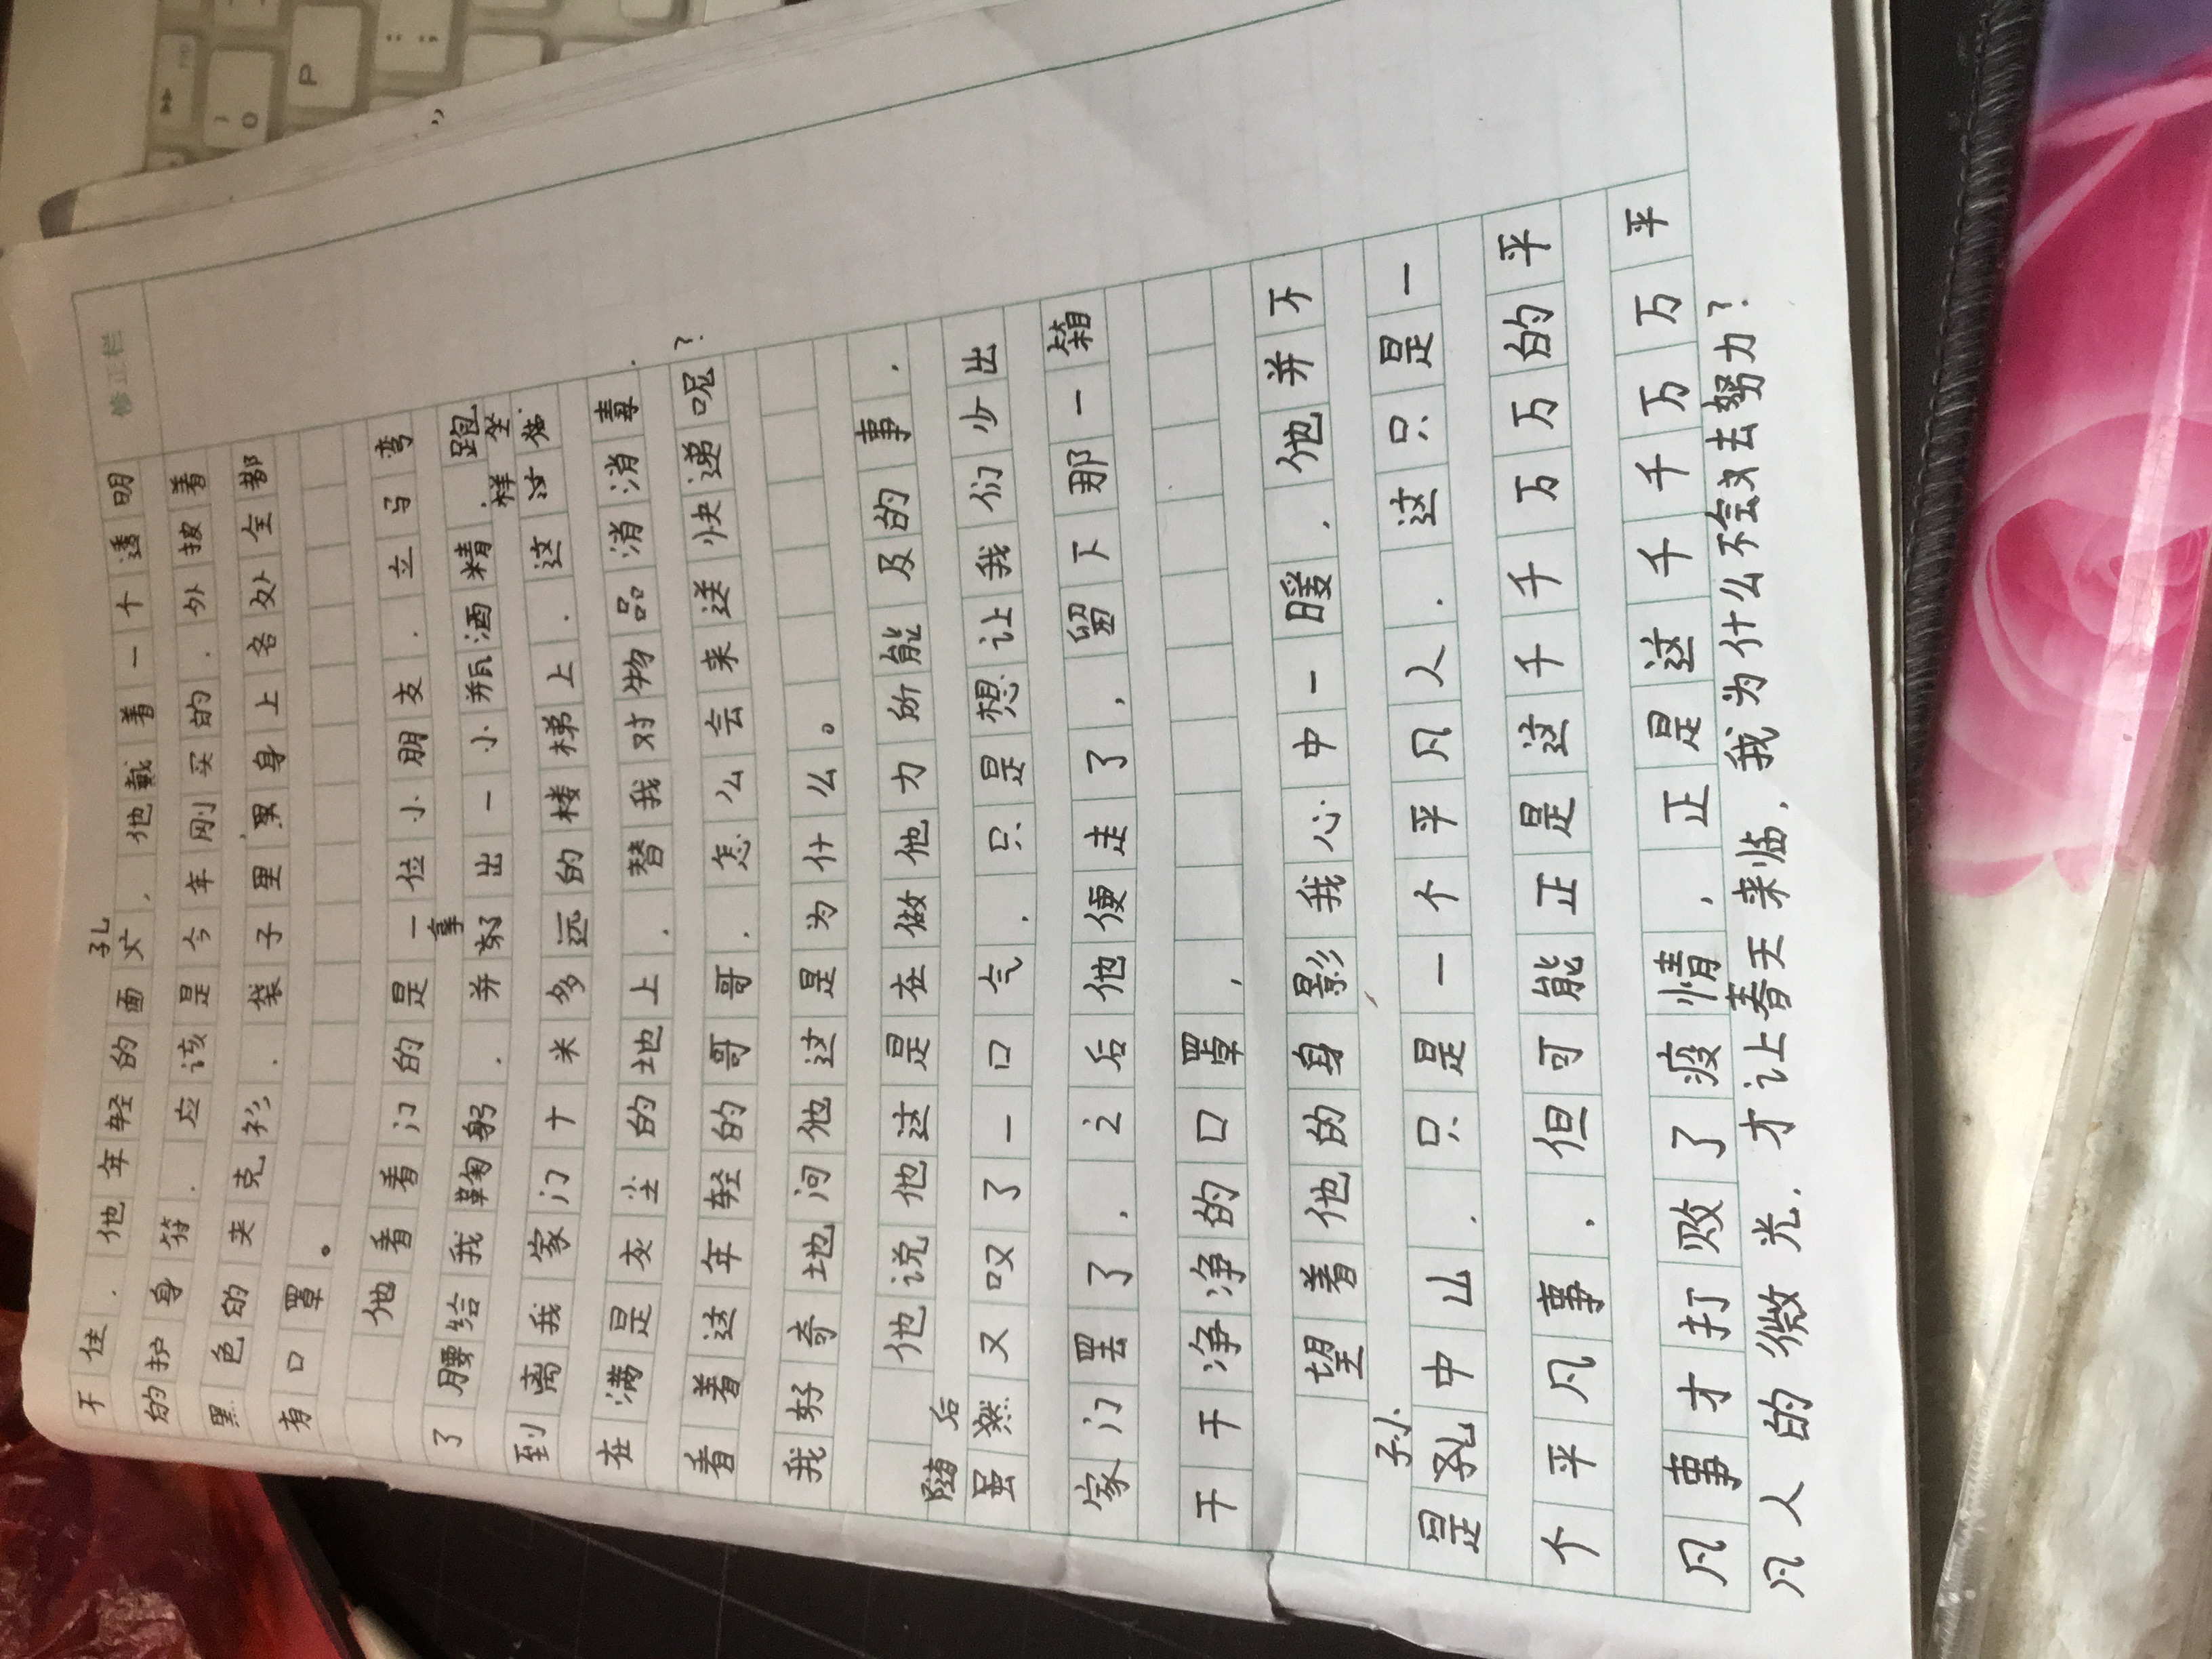 修正栏
不住，他年轻的面孔，他戴着一个透明
的护身符，应该是今年刚买的，外披着
黑色的夹克衫，袋子里，身上各处全都
有口罩。
他看着门的是一位小朋友，立马弯
了腰给我鞠躬，并拿出一小瓶酒精，跑
到离我家门十米多远的楼梯上，这样坐
在满是灰尘的地上，替我对物品消消毒，
看着这年轻的哥哥，怎么会来送快递呢？
我好奇地问他这是为什么。
他说他这是在做他力所能及的事，
随后又叹了一口气，只是想让我们少出
家门罢了，之后他便走了，留下那一箱
干干净净的口罩，
望着他的身影我心中一暖，他并不
是孙中山，只是一个平凡人，这只是一
个平凡事，但可能正是这千千万万的平
凡事才打败了疫情，正是这千千万万平
凡人的微光，才让春天来临，我为什么不去努力？
P